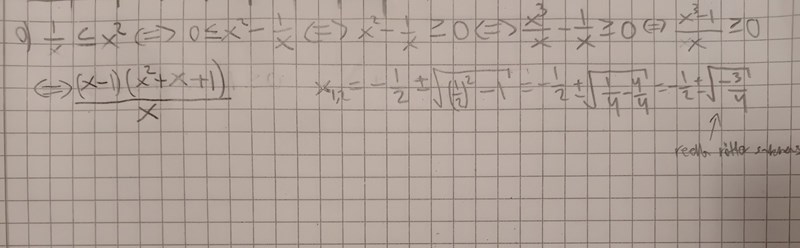 a) 1/x ≤ x² ⟺ 0 ≤ x² - 1/x ⟺ x² - 1/x ≥ 0 ⟺ x³/x - 1/x ≥ 0 ⟺ (x³-1)/x ≥ 0
⟺ (x-1)(x²+x+1)/x x₁,₂ = -1/2 ± √((1/2)² - 1) = -1/2 ± √(1/4 - 4/4) = -1/2 ± √(-3/4)
reella rötter saknas